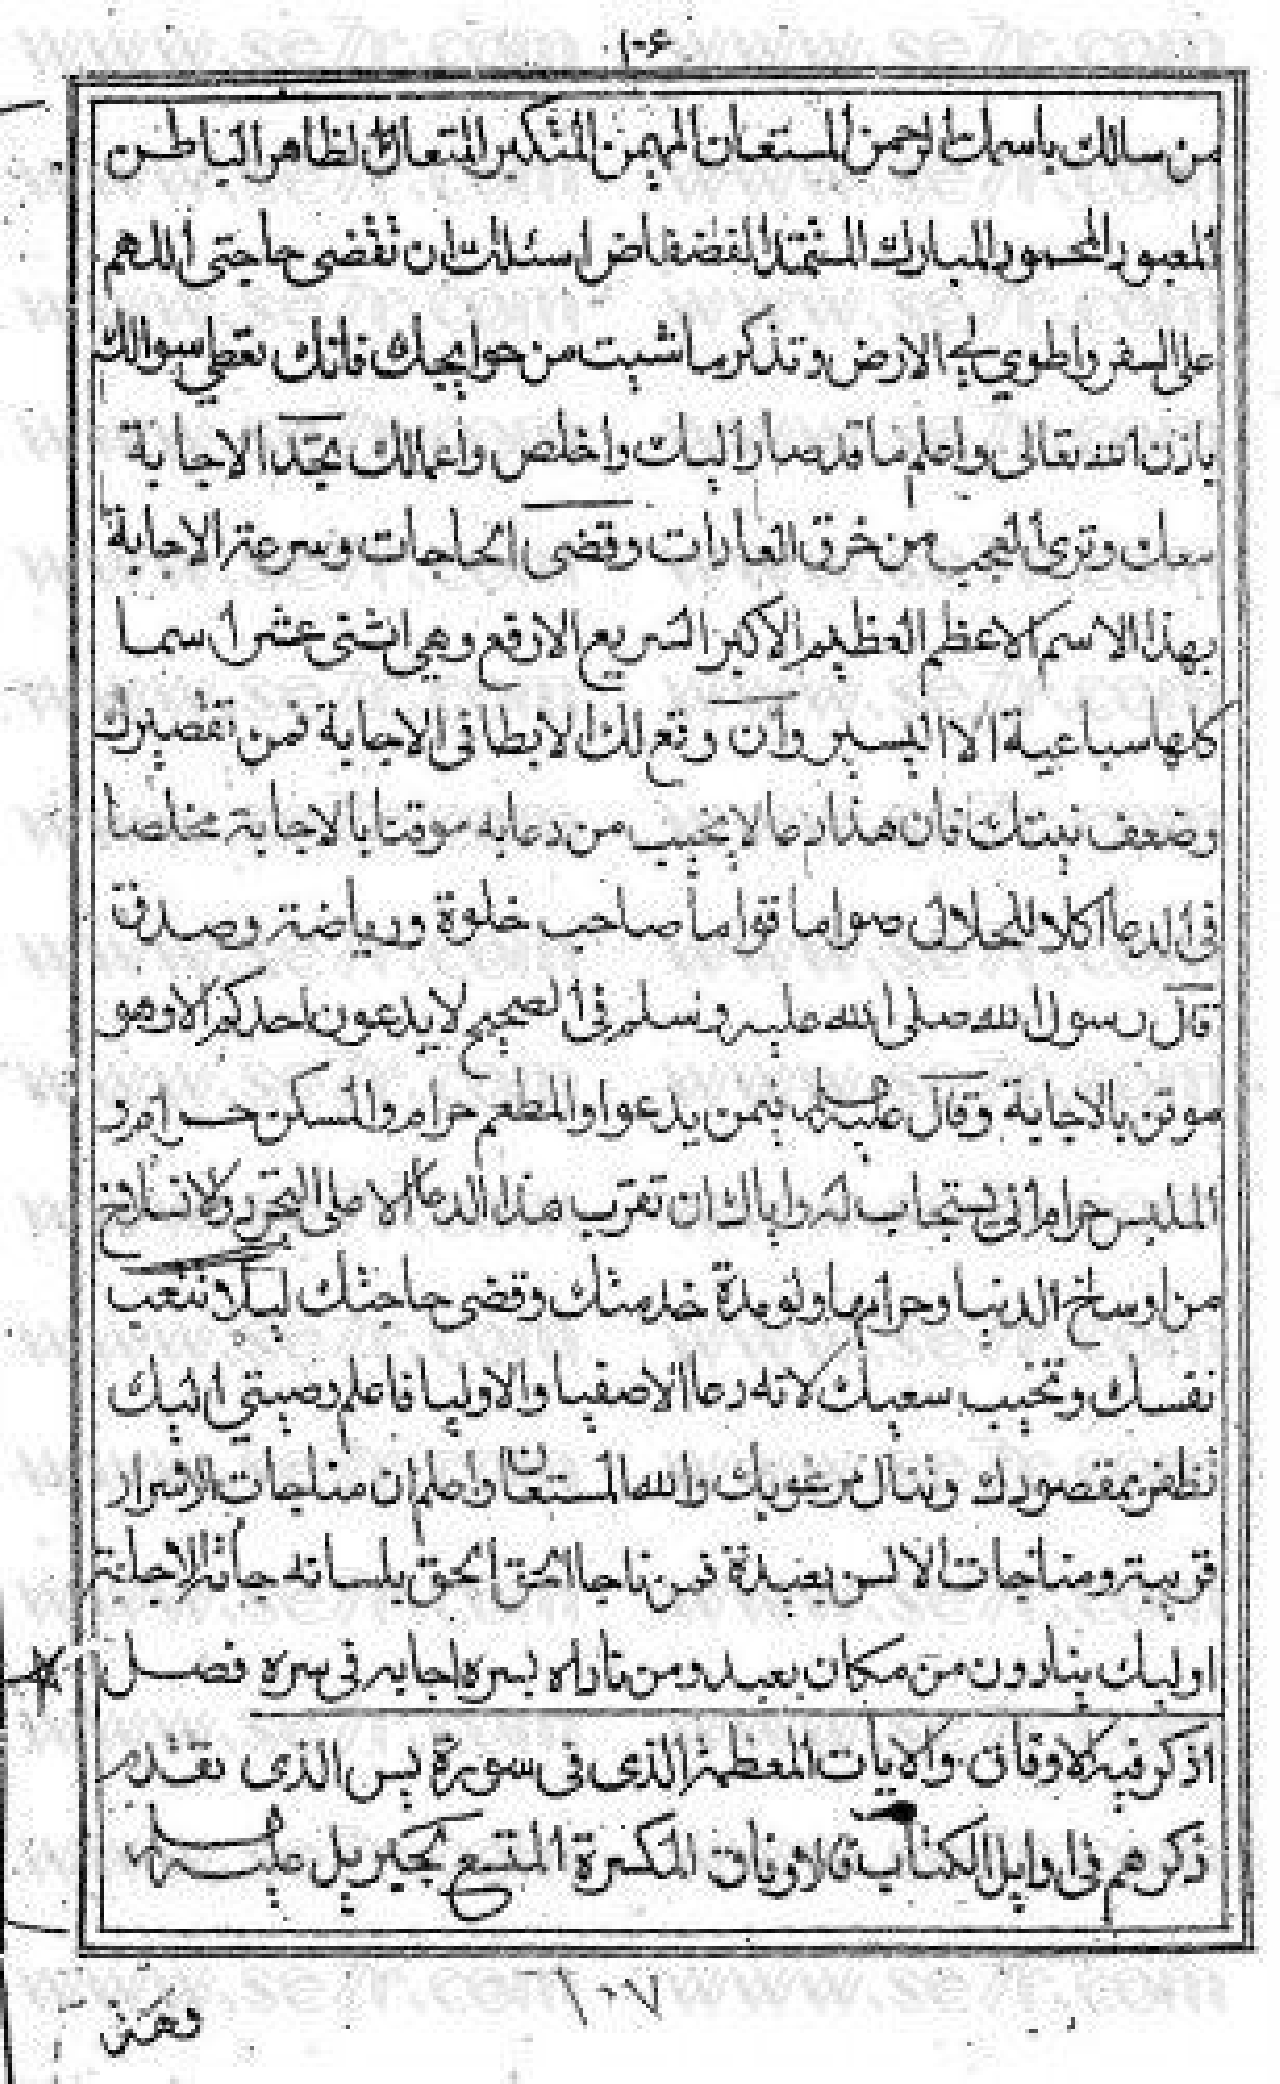 ١٠٦
من سالك باسمك الرحمن المستعان المهيمن المتكبر المتعال الظاهر الباطن
المصور المحمود المبارك اسئلك ان تقضى حاجتى اللهم
على السفر واطوي لي الارض وتذكر ما شيت من حوايجك فانك تعطي سوالك
باذن الله تعالى واعلم ما قد صار اليك واخلص واعمالك تجد الاجابة
معك وترى العجب من خرق العادات وقضى الحاجات وسرعة الاجابة
بهذا الاسم الاعظم العظيم الاكبر السريع الارفع وهي اثنى عشر اسما
كلها سباعية الا اليسير وان وقع لك الابطا فى الاجابة فمن تقصيرك
وضعف نيتك فان هذا دعا لا يخيب من دعا به موقنا بالاجابة مخلصا
فى الدعا اكلا للحلال صواما قواما صاحب خلوة ورياضة وصدق
قال رسول الله صلى الله عليه وسلم فى الصحيح لا يدعون احدكم الا وهو
موقن بالاجابة وقال عليه فيمن يدعوا والمطعم حرام والمسكن حرام و
الملبس حرام انى يستجاب له واياك ان تقرب هذا الدعا الا على التحرد
من اوساخ الدنيا وحرامها ولو مدة خدمتك وقضى حاجتك ليلا تتعب
نفسك وتخيب سعيك لانه دعا الاصفيا والاوليا فاعلم وصيتي اليك
تظفر بمقصودك وتنال مرغوبك والله المستعان واعلم ان مناجات الاسرار
قريبة ومناجات الالسن بعيدة فمن ناجا الحق بلسانه جاته الاجابة
اوليك ينادون من مكان بعيد ومن ناداه بسره اجابه فى سره فصل
اذكر فيه الاوفاق والايات المعظمة الذى فى سورة يس الذى تقدم
ذكرهم فى اوايل الكتاب فالاوفاق المكسرة المتسع لجبريل عليه
١٠٧